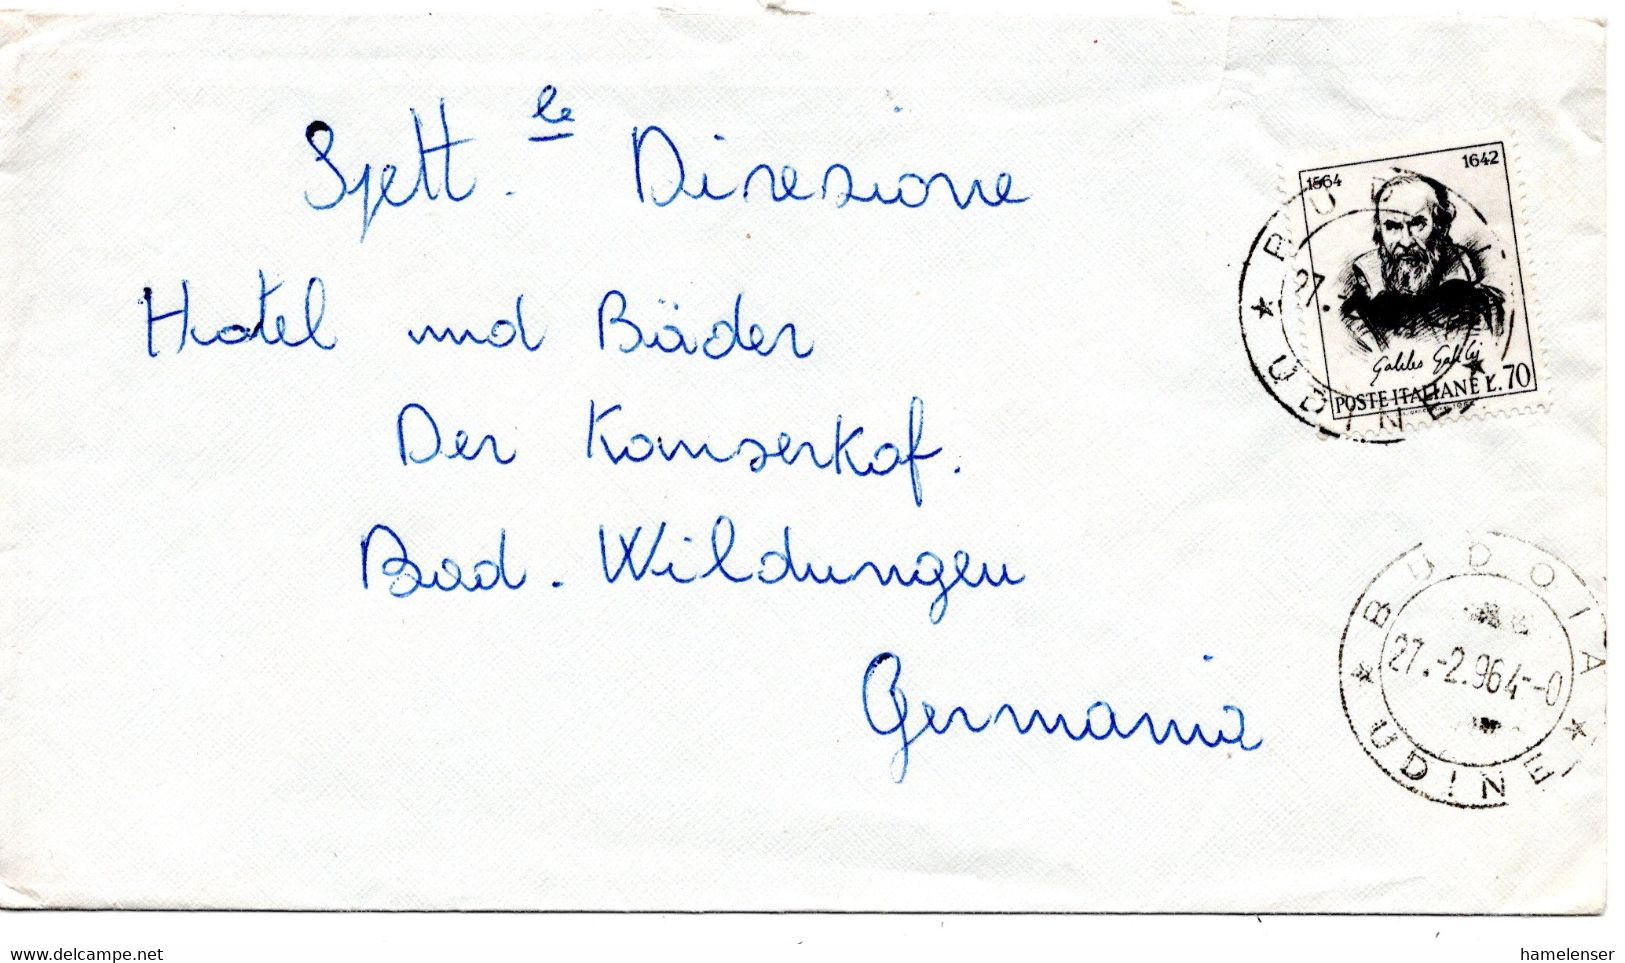 Spett.le Direzione
Hotel und Bäder
Der Komserkof.
Bad-Wildungen
Germania
1564 1642
Galileo Galilei
POSTE ITALIANE L.70
BUD
27.
UDINE
BUDOIA
27.-2.964-0
UDINE
www.delcampe.net
hamelenser